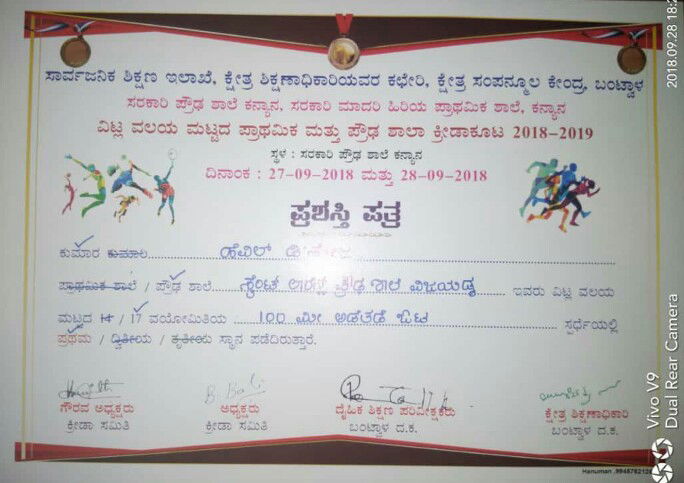 ಸಾರ್ವಜನಿಕ ಶಿಕ್ಷಣ ಇಲಾಖೆ, ಕ್ಷೇತ್ರ ಶಿಕ್ಷಣಾಧಿಕಾರಿಯವರ ಕಛೇರಿ, ಕ್ಷೇತ್ರ ಸಂಪನ್ಮೂಲ ಕೇಂದ್ರ, ಬಂಟ್ವಾಳ
ಸರಕಾರಿ ಪ್ರೌಢ ಶಾಲೆ ಕನ್ಯಾನ, ಸರಕಾರಿ ಮಾದರಿ ಹಿರಿಯ ಪ್ರಾಥಮಿಕ ಶಾಲೆ, ಕನ್ಯಾನ
ವಿಟ್ಲ ವಲಯ ಮಟ್ಟದ ಪ್ರಾಥಮಿಕ ಮತ್ತು ಪ್ರೌಢ ಶಾಲಾ ಕ್ರೀಡಾಕೂಟ 2018-2019
ಸ್ಥಳ : ಸರಕಾರಿ ಪ್ರೌಢ ಶಾಲೆ ಕನ್ಯಾನ
ದಿನಾಂಕ : 27-09-2018 ಮತ್ತು 28-09-2018
ಪ್ರಶಸ್ತಿ ಪತ್ರ
ಕುಮಾರ ಕುಮಾರಿ
ಪ್ರಾಥಮಿಕ ಶಾಲೆ / ಪ್ರೌಢ ಶಾಲೆ ಪ್ರೌಢ ಶಾಲೆ ವಿಜಯಡ್ಕ ಇವರು ವಿಟ್ಲ ವಲಯ
ಮಟ್ಟದ 14 / 17 ವಯೋಮಿತಿಯ 100 ಮೀ ಅಡೆತಡೆ ಓಟ ಸ್ಪರ್ಧೆಯಲ್ಲಿ
ಪ್ರಥಮ / ದ್ವಿತೀಯ / ತೃತೀಯ ಸ್ಥಾನ ಪಡೆದಿರುತ್ತಾರೆ.
ಗೌರವ ಅಧ್ಯಕ್ಷರು ಅಧ್ಯಕ್ಷರು ದೈಹಿಕ ಶಿಕ್ಷಣ ಪರಿವೀಕ್ಷಕರು ಕ್ಷೇತ್ರ ಶಿಕ್ಷಣಾಧಿಕಾರಿ
ಕ್ರೀಡಾ ಸಮಿತಿ ಕ್ರೀಡಾ ಸಮಿತಿ ಬಂಟ್ವಾಳ ದ.ಕ. ಬಂಟ್ವಾಳ ದ.ಕ.
Hanuman
2018.09.28
Vivo V9
Dual Rear Camera